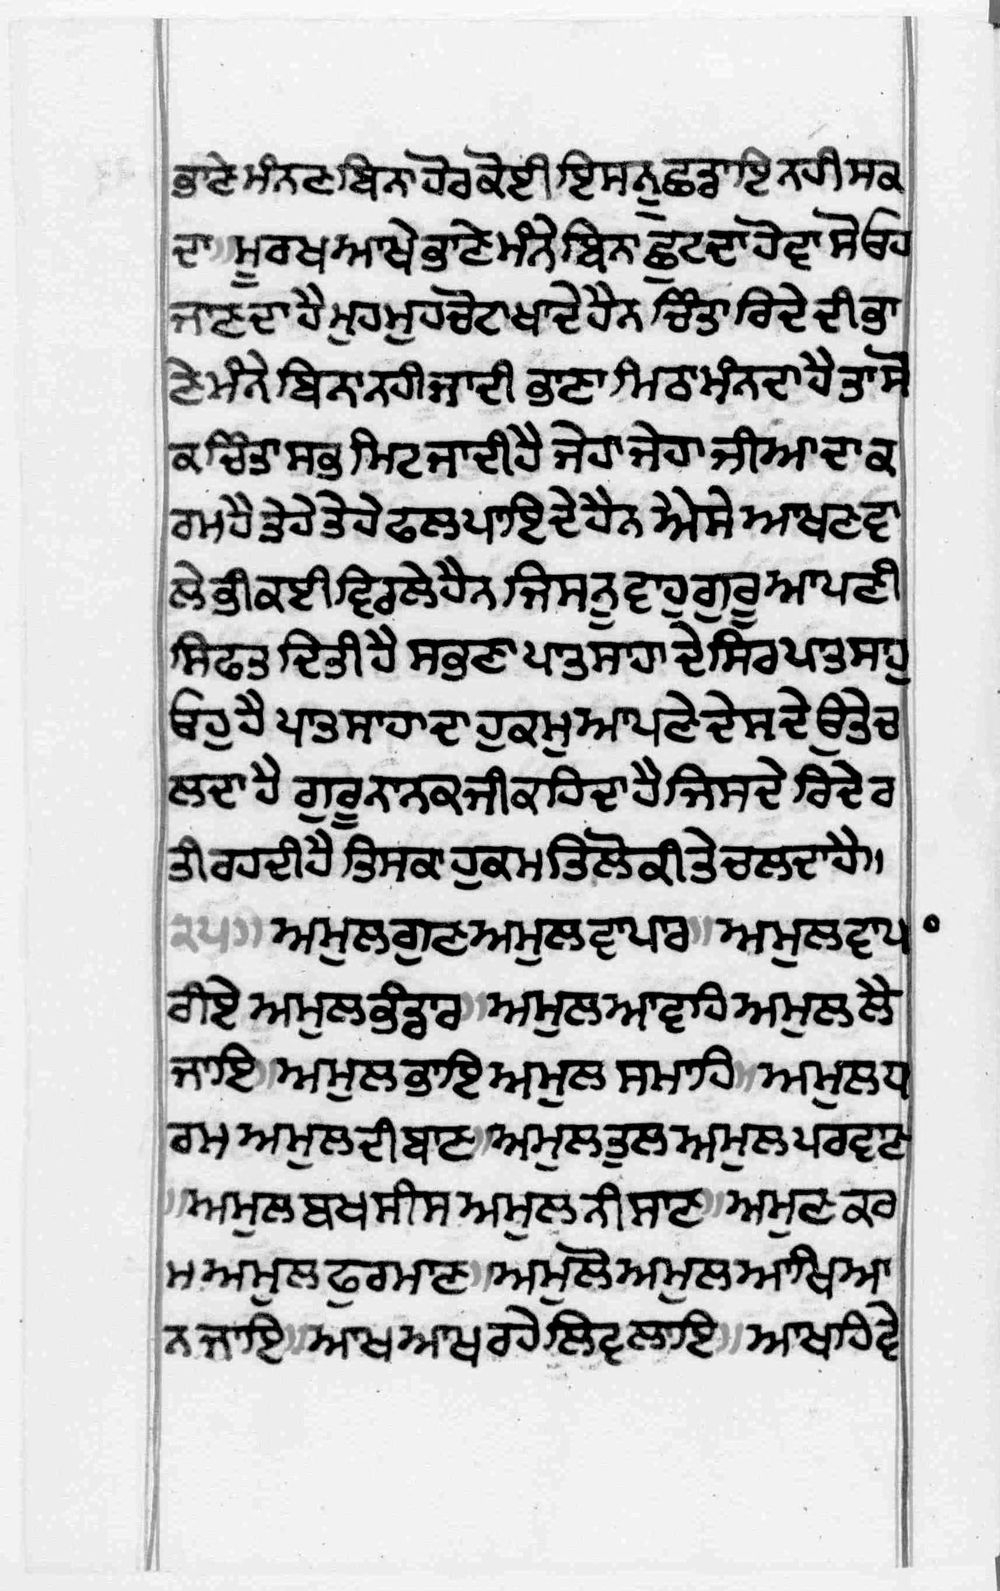 ਭਾਣੇ ਮੰਨਣ ਬਿਨਾ ਹੋਰ ਕੋਈ ਇਸਨੂ ਛਡਾਇ ਨਹੀ ਸਕ
ਦਾ॥ ਮੂਰਖ ਆਖੇ ਭਾਣੇ ਮੰਨੇ ਬਿਨਾ ਛੁਟਦਾ ਹੋਵਾ ਸੋ ਓਹ
ਜਾਣਦਾ ਹੈ ਮੁਹ ਮੁਹ ਚੋਟਾ ਖਾਦੇ ਹੈਨ ਚਿੰਤਾ ਰਿਦੇ ਦੀ ਭਾ
ਣੇ ਮੰਨੇ ਬਿਨਾ ਨਹੀ ਜਾਦੀ ਭਾਣਾ ਮਿਠਾ ਮੰਨਦਾ ਹੈ ਤਾ ਸੋ
ਕ ਚਿੰਤਾ ਸਭ ਮਿਟ ਜਾਦੀ ਹੈ ਜੇਹਾ ਜੇਹਾ ਜੀਆ ਦਾ ਕ
ਰਮ ਹੈ ਤੇਹੇ ਤੇਹੇ ਫਲ ਪਾਇਦੇ ਹੈਨ ਐਸੇ ਆਖਣ ਵਾ
ਲੇ ਭੀ ਕਈ ਵਿਰਲੇ ਹੈਨ ਜਿਸਨੂ ਵਾਹੁਗੁਰੂ ਆਪਣੀ
ਸਿਫਤ ਦਿਤੀ ਹੈ ਸਭਣਾ ਪਾਤਸਾਹਾ ਦੇ ਸਿਰ ਪਾਤਸਾਹੁ
ਓਹੁ ਹੈ ਪਾਤਸਾਹਾ ਦਾ ਹੁਕਮੁ ਆਪਣੇ ਦੇਸ ਦੇ ਉਤੇ ਚ
ਲਦਾ ਹੈ ਗੁਰੂ ਨਾਨਕ ਜੀ ਕਹਿਦਾ ਹੈ ਜਿਸਦੇ ਰਿਦੇ ਰ
ਤੀ ਰਹਦੀ ਹੈ ਤਿਸਕਾ ਹੁਕਮ ਤਿਲੋਕੀ ਤੇ ਚਲਦਾ ਹੈ॥
੨੫॥ ਅਮੁਲ ਗੁਣ ਅਮੁਲ ਵਾਪਾਰ॥ ਅਮੁਲ ਵਾਪ
ਰੀਏ ਅਮੁਲ ਭੰਡਾਰ॥ ਅਮੁਲ ਆਵਹਿ ਅਮੁਲ ਲੈ
ਜਾਇ॥ ਅਮੁਲ ਭਾਇ ਅਮੁਲ ਸਮਾਹਿ॥ ਅਮੁਲ ਧ
ਰਮ ਅਮੁਲ ਦੀਬਾਣ॥ ਅਮੁਲ ਤੁਲ ਅਮੁਲ ਪਰਵਾਣ
॥ਅਮੁਲ ਬਖਸੀਸ ਅਮੁਲ ਨੀਸਾਣ॥ ਅਮੁਣ ਕਰ
ਮ ਅਮੁਲ ਫੁਰਮਾਣ॥ ਅਮੁਲੋ ਅਮੁਲ ਆਖਿਆ
ਨ ਜਾਇ॥ ਆਖ ਆਖ ਰਹੇ ਲਿਵ ਲਾਇ॥ ਆਖਹਿ ਵੇ